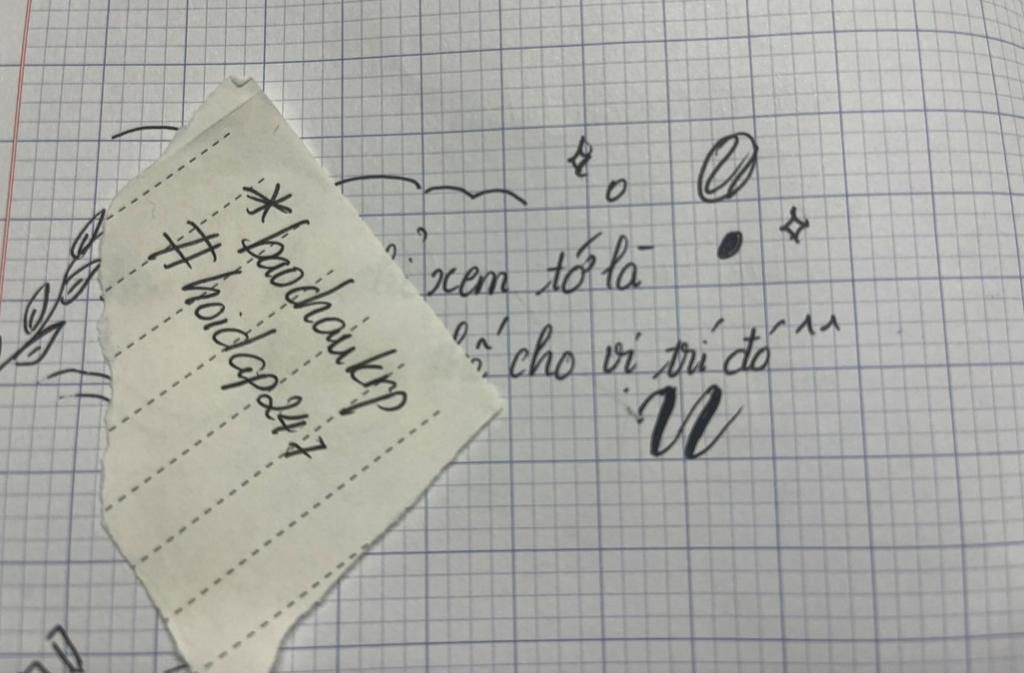 *baochaukrp
#hoidap247
xem tớ là
cho vị trí đó ^^